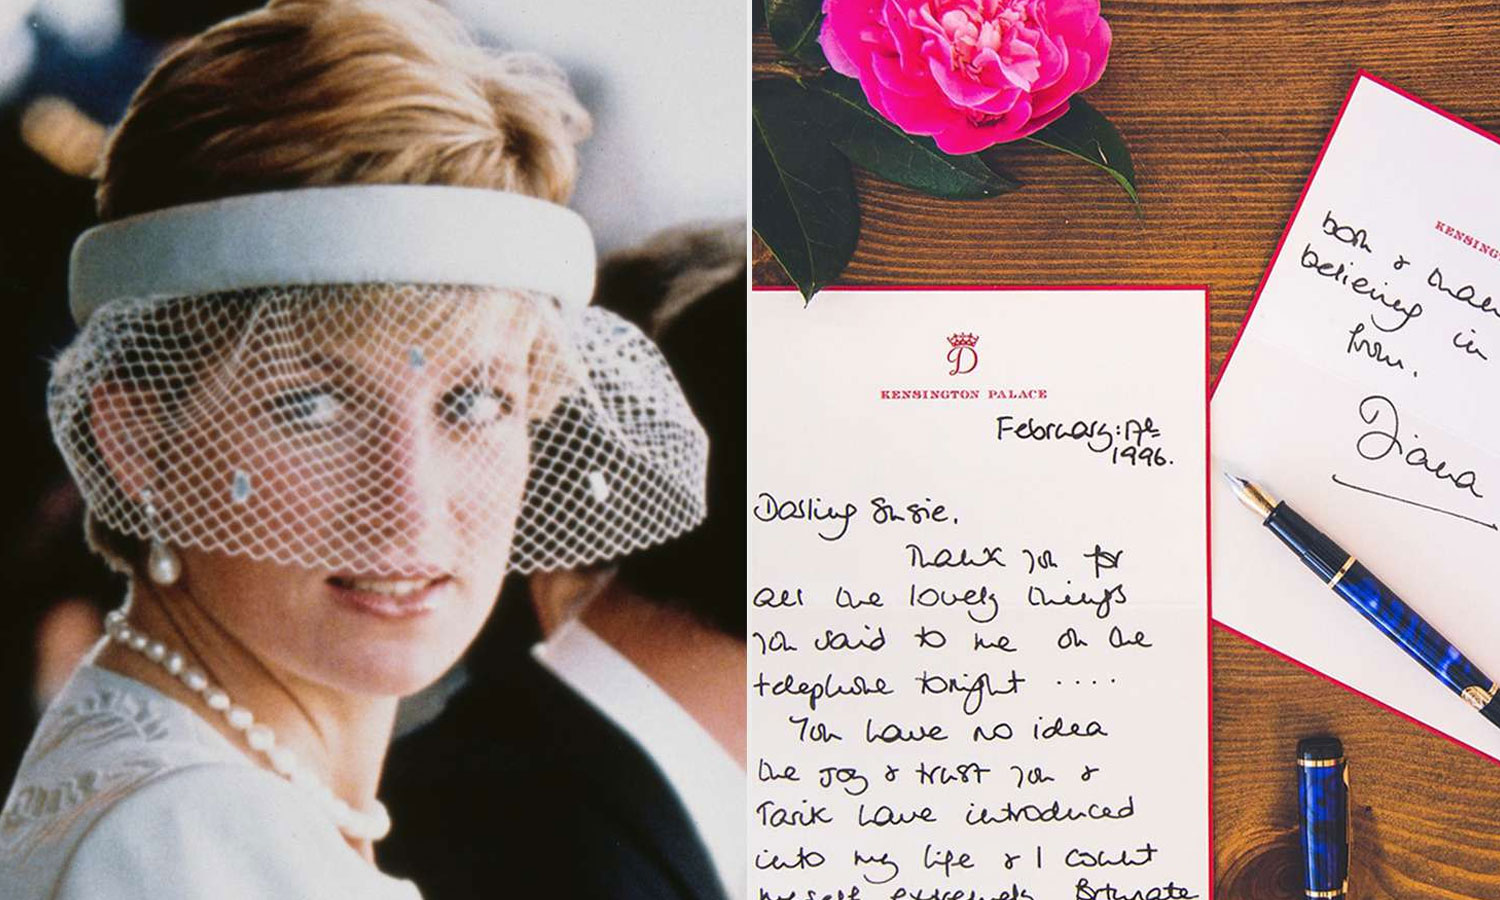 D
KENSINGTON PALACE
February: 17th
1996.
Darling Susie,
Thank you for
all the lovely things
you said to me on the
telephone tonight ....
You have no idea
the joy & trust you &
Tarik have introduced
into my life & I count
myself extremely fortunate
KENSING
both & thank
believing in
from.
Diana